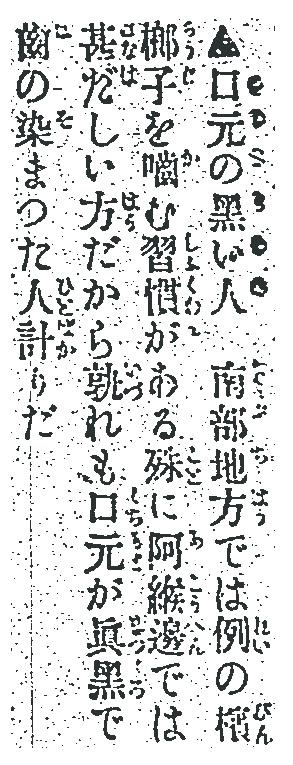 ▲口元の黒い人　南部地方では例の檳
榔子を嚙む習慣がある殊に阿緱邊では
甚だしい方だから孰れも口元が眞黒で
齒の染まつた人計りだ